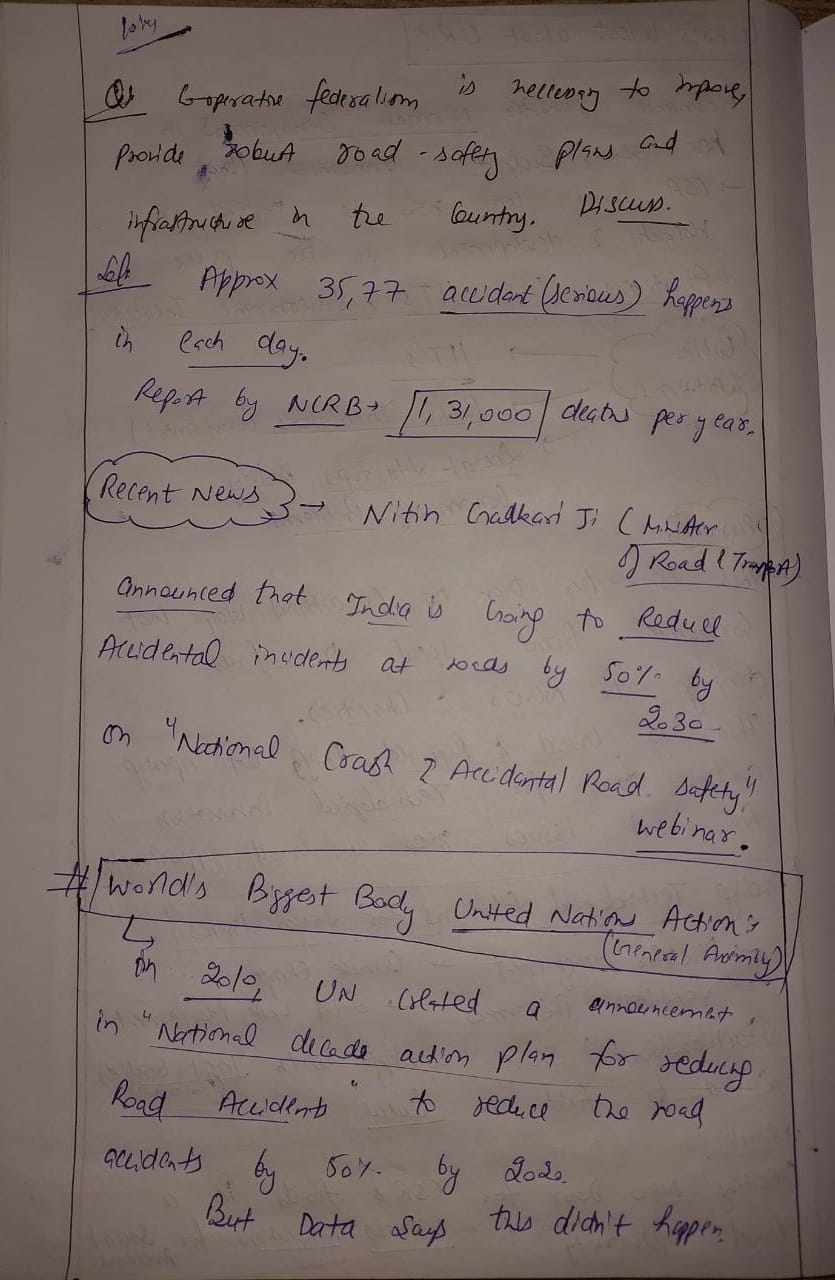 Q: Co-operative federalism is necessary to improve,
provide robust road-safety plans and
infrastructure in the Country. Discuss.
Sol:
Approx 35,77 accidant (serious) happens
in each day.
Report by NCRB → 1,31,000 deaths per year.
Recent News → Nitin Gadkari Ji (Minister
of Road & Transport)
announced that India is Going to Reduce
Accidental incidents at roads by 50% by
2030
on "National Crash & Accidantal Road safety"
webinar.
# World's Biggest Body United Nations Action:
(General Assembly)
↳ In 2010, UN created a announcement,
in "National decade action plan for reducing
Road Accidents" to reduce the road
accidents by 50% by 2020
But Data says this didn't happen.